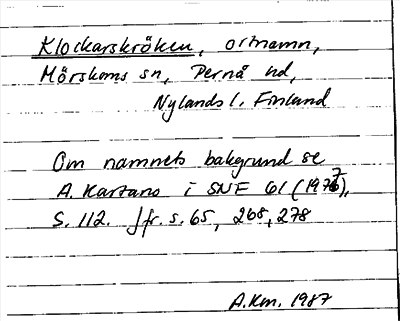 Klockarskröken, ortnamn,
Mörskoms sn, Pernå hd,
Nylands l. Finland
Om namnets bakgrund se
A. Kartano i SNE 61 (1977),
S. 112. Jfr. s. 65, 268, 278
A.Km. 1987